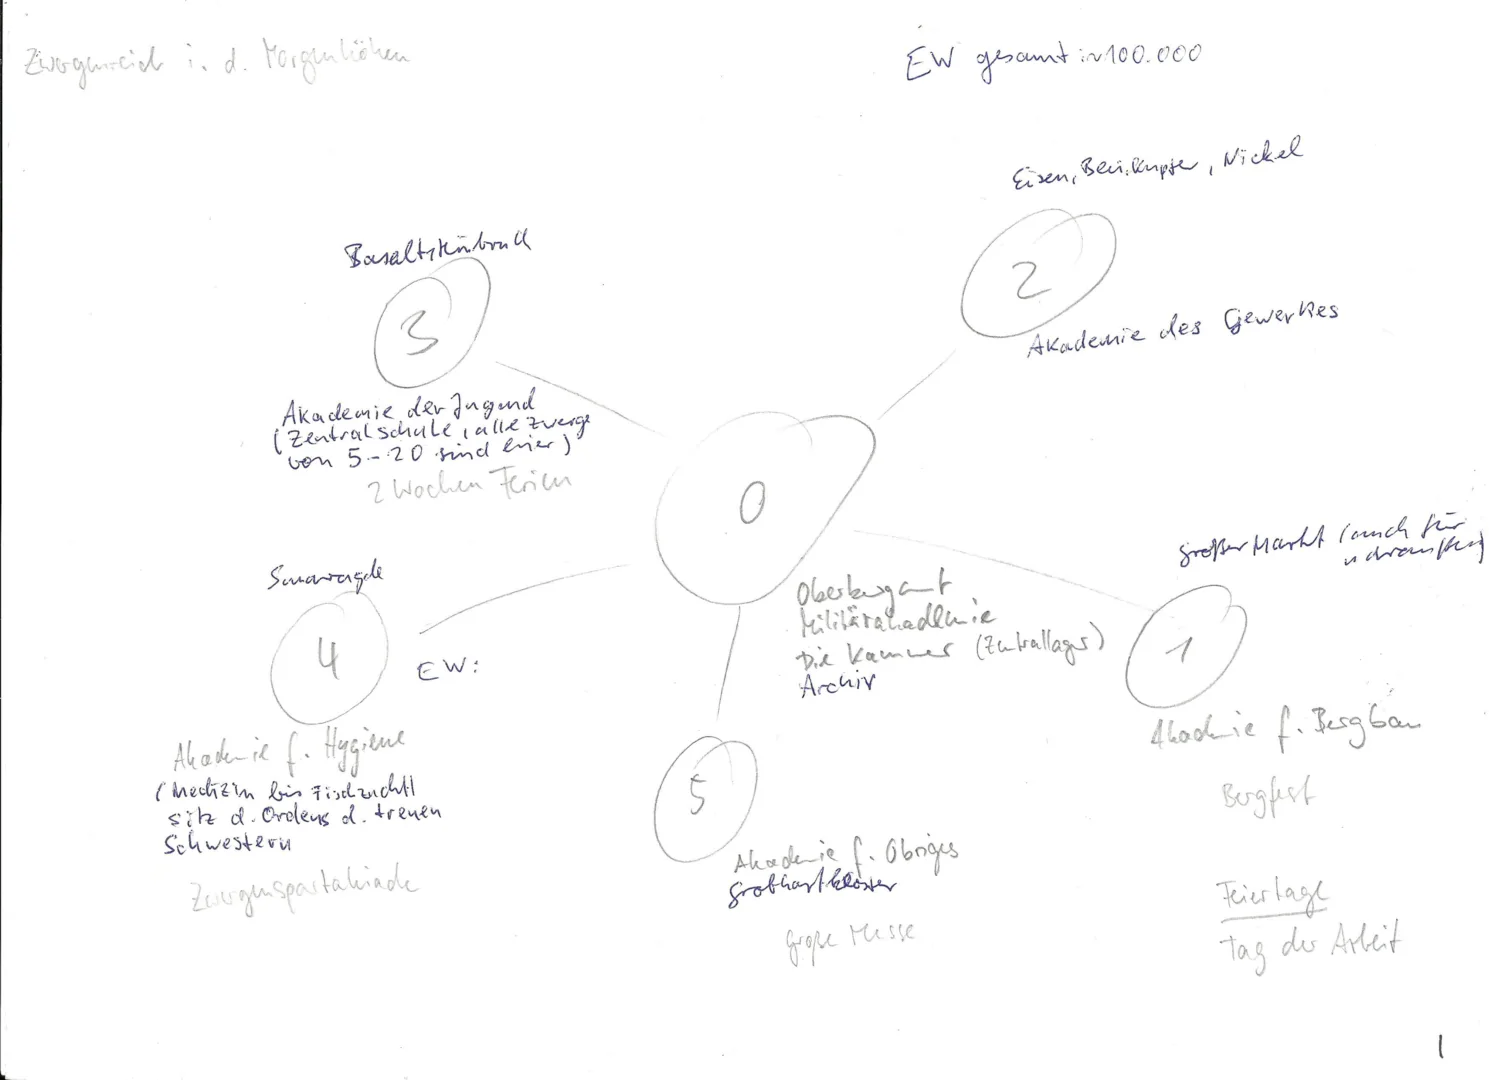 Zwergenreich i. d. Morgenhöhen
EW gesamt: ~100.000
Eisen, Blei, Kupfer, Nickel
2
Akademie des Gewerkes
Basaltsteinbruch
3
Akademie der Jugend
(Zentralschule, alle Zwerge
von 5-20 sind hier)
2 Wochen Ferien
0
Oberbergamt
Militärakademie
Die Kammer (Zentrallager)
Archiv
großer Markt (auch für
"draußen")
1
Akademie f. Bergbau
Bergfest
Smaragde
4
EW:
Akademie f. Hygiene
(Medizin bis Fischzucht)
Sitz d. Ordens d. treuen
Schwestern
Zwergenspartakiade
5
Akademie f. Obriges
Grobhartkloster
Große Messe
Feiertage
Tag der Arbeit
1